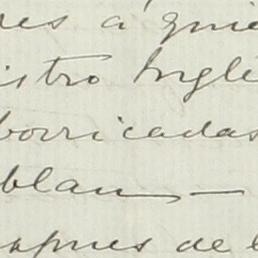 res á quie
istro Inglé
borricadas
blan —
espues de l